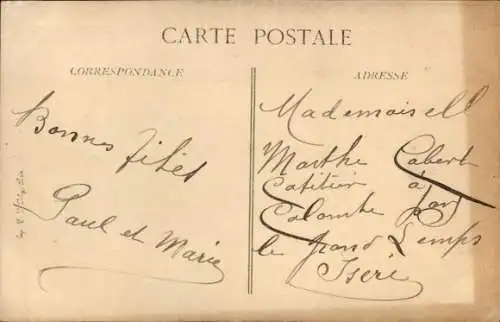 CARTE POSTALE
CORRESPONDANCE
Bonnes fêtes
Paul et Marie
ADRESSE
Mademoisell
Marthe Cabert
à
Colombe par
le grand Lemps
Isère